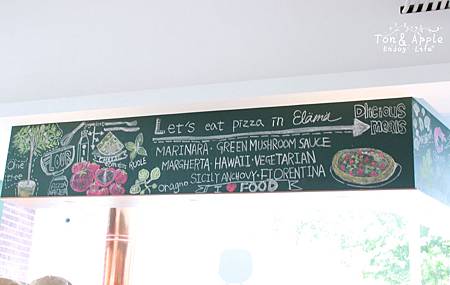 Ton & Apple
Enjoy Life
Let's eat pizza in Eläma
Delicious
meals
MARINARA · GREEN MUSHROOM SAUCE
MARGHERTA · HAWAII · VEGETARIAN
SICILY ANCHOVY · FIORENTINA
I ♥ FOOD
Olive
tree
FLOUR
RUCOLE
oragno